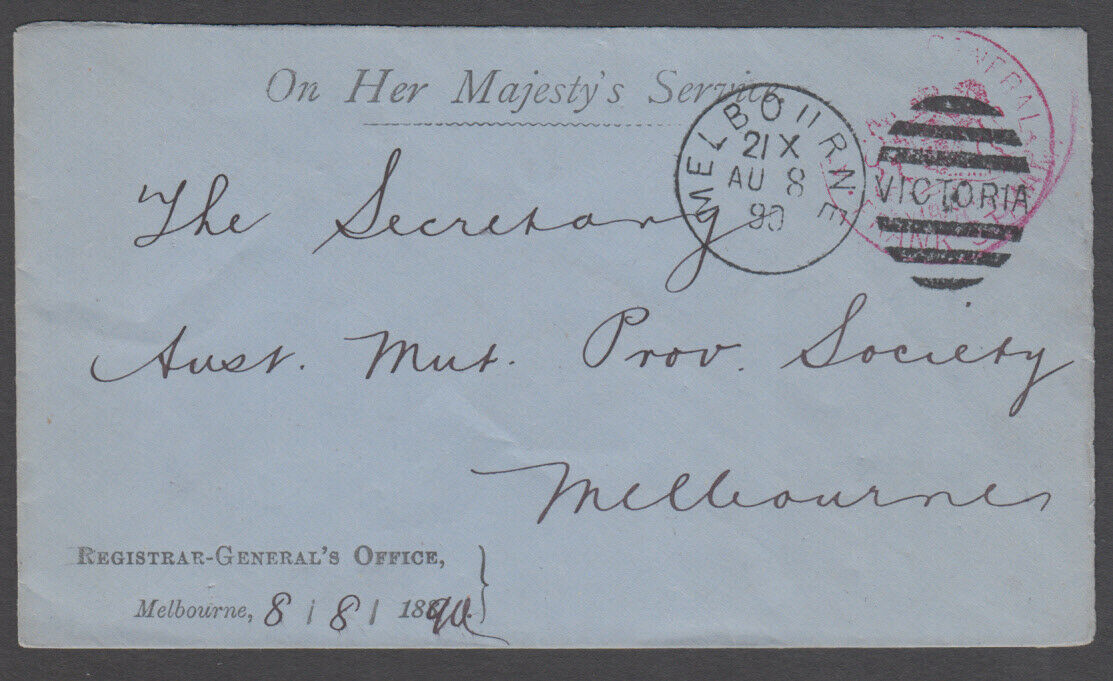 On Her Majesty's Service.
MELBOURNE
21 X
AU 8
90
VICTORIA
GENERAL
FRANK STAMP
The Secretary
Aust. Mut. Prov. Society
Melbourne
REGISTRAR-GENERAL'S OFFICE,
Melbourne, 8 / 8 / 1890.